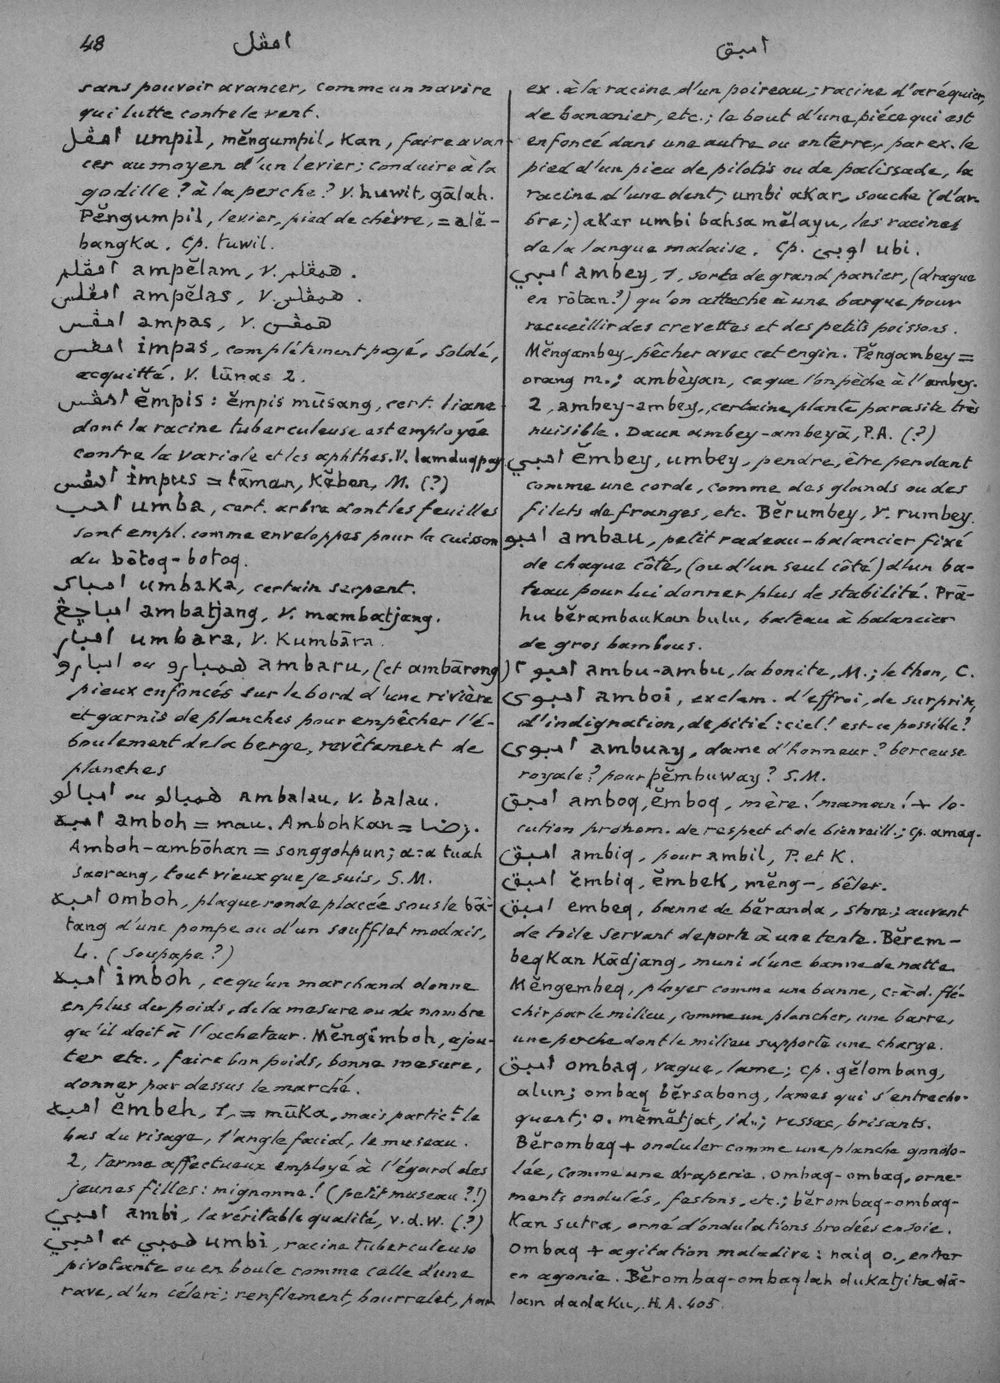 48
امڤل
امبق
sans pouvoir avancer, comme un navire
qui lutte contre le vent.
امڤل umpil, mĕngumpil, kan, faire avan-
cer au moyen d'un levier; conduire à la
godille? à la perche? V. huwit, gālah.
Pĕngumpil, levier, pied de chèvre, = alĕ-
bangka. Cp. tuwil.
امڤلم ampĕlam, V. همڤلم.
امڤلس ampĕlas, V. همڤلس.
امڤس ampas, V. همڤس
امڤس impas, complètement payé, soldé,
acquitté. V. lūnas 2.
امڤس ĕmpis: ĕmpis mūsang, cert. liane
dont la racine tuberculeuse est employée
contre la variole et les aphthes. V. lamduqpay
امڤس impus = tāman, Kĕbon, M. (?)
امب umba, cert. arbre dont les feuilles
sont empl. comme enveloppes pour la cuisson
du bōtoq-botoq.
امباک umbaka, certain serpent.
امباچڠ ambatjang, V. mambatjang.
امبار umbara, V. Kumbāra.
امبارو ou همبارو ambaru, (et ambārong)
pieux enfoncés sur le bord d'une rivière
et garnis de planches pour empêcher l'é-
boulement de la berge, revêtement de
planches
امبالو ou همبالو ambalau, V. balau.
امبه amboh = mau. Ambohkan = رضا.
Amboh-ambōhan = songgohpun; a:a tuah
saorang, tout vieux que je suis, S.M.
امبه omboh, plaque ronde placée sous le bā-
tang d'une pompe ou d'un soufflet modais,
L. (Soupape?)
امبه imboh, ce qu'un marchand donne
en plus du poids, de la mesure ou du nombre
qu'il doit à l'acheteur. Mĕngimboh, ajou-
ter etc., faire bon poids, bonne mesure,
donner par dessus le marché.
امبه ĕmbeh, 1, = mūka, mais partict. le
bas du visage, l'angle facial, le museau.
2, terme affectueux employé à l'égard des
jeunes filles: mignonne! (petit museau?!)
امبي ambi, la véritable qualité, v.d.W. (?)
امبي et همبي umbi, racine tuberculeuse
pivotante ou en boule comme celle d'une
rave, d'un céleri; renflement, bourrelet, par
ex. à la racine d'un poireau; racine d'aréquier,
de bananier, etc.; le bout d'une pièce qui est
enfoncé dans une autre ou enterre, par ex. le
pied d'un pieu de pilotis ou de palissade, la
racine d'une dent; umbi akar, souche (d'ar-
bre;) akar umbi bahsa mĕlayu, les racines
de la langue malaise. Cp. اوبي ubi.
امبي ambey, 1, sorte de grand panier, (drague
en rōtan?) qu'on attache à une barque pour
recueillir des crevettes et des petits poissons.
Mĕngambey, pêcher avec cet engin. Pĕngambey =
orang m.; ambèyan, ce que l'on pêche à l'ambey.
2, ambey-ambey, certaine plante parasite très
nuisible. Daun ambey-ambeyā, P.A. (?)
امبي ĕmbey, umbey, pendre, être pendant
comme une corde, comme des glands ou des
filets de franges, etc. Bĕrumbey, V. rumbey.
امبو ambau, petit radeau-balancier fixé
de chaque côté, (ou d'un seul côté) d'un ba-
teau pour lui donner plus de stabilité. Prā-
hu bĕrambaukan bulu, bateau à balancier
de gros bambous.
امبو٢ ambu-ambu, la bonite, M.; le thon, C.
امبوي amboi, exclam. d'effroi, de surprise,
d'indignation, de pitié: ciel! est-ce possible?
امبوي ambuay, dame d'honneur? berceuse
royale? pour pĕmbuway? S.M.
امبق amboq, ĕmboq, mère! maman! + lo-
cution prohom. de respect et de bienveill.; cp. amaq.
امبق ambiq, pour ambil, P. et K.
امبق ĕmbiq, ĕmbek, mĕng-, bêler.
امبق embeq, banne de bĕranda, store; auvent
de toile servant de porte à une tente. Bĕrem-
beqkan Kādjang, muni d'une banne de natte
Mĕngembeq, ployer comme une banne, c-à-d. flé-
chir par le milieu, comme un plancher, une barre,
une perche dont le milieu supporte une charge.
امبق ombaq, vague, lame; cp. gĕlombang,
alun; ombaq bĕrsabong, lames qui s'entrecho-
quent; o. mĕmĕtjat, id.; ressac, brisants.
Bĕrombaq + onduler comme une planche gondo-
lée, comme une draperie. ombaq-ombaq, orne-
ments ondulés, festons, etc.; bĕrombaq-ombaq-
kan sutra, orné d'ondulations brodées en soie.
Ombaq + agitation maladive: naiq o., entrer
en agonie. Bĕrombaq-ombaqlah dukatjita dā-
lam dadaku, H.A. 405.